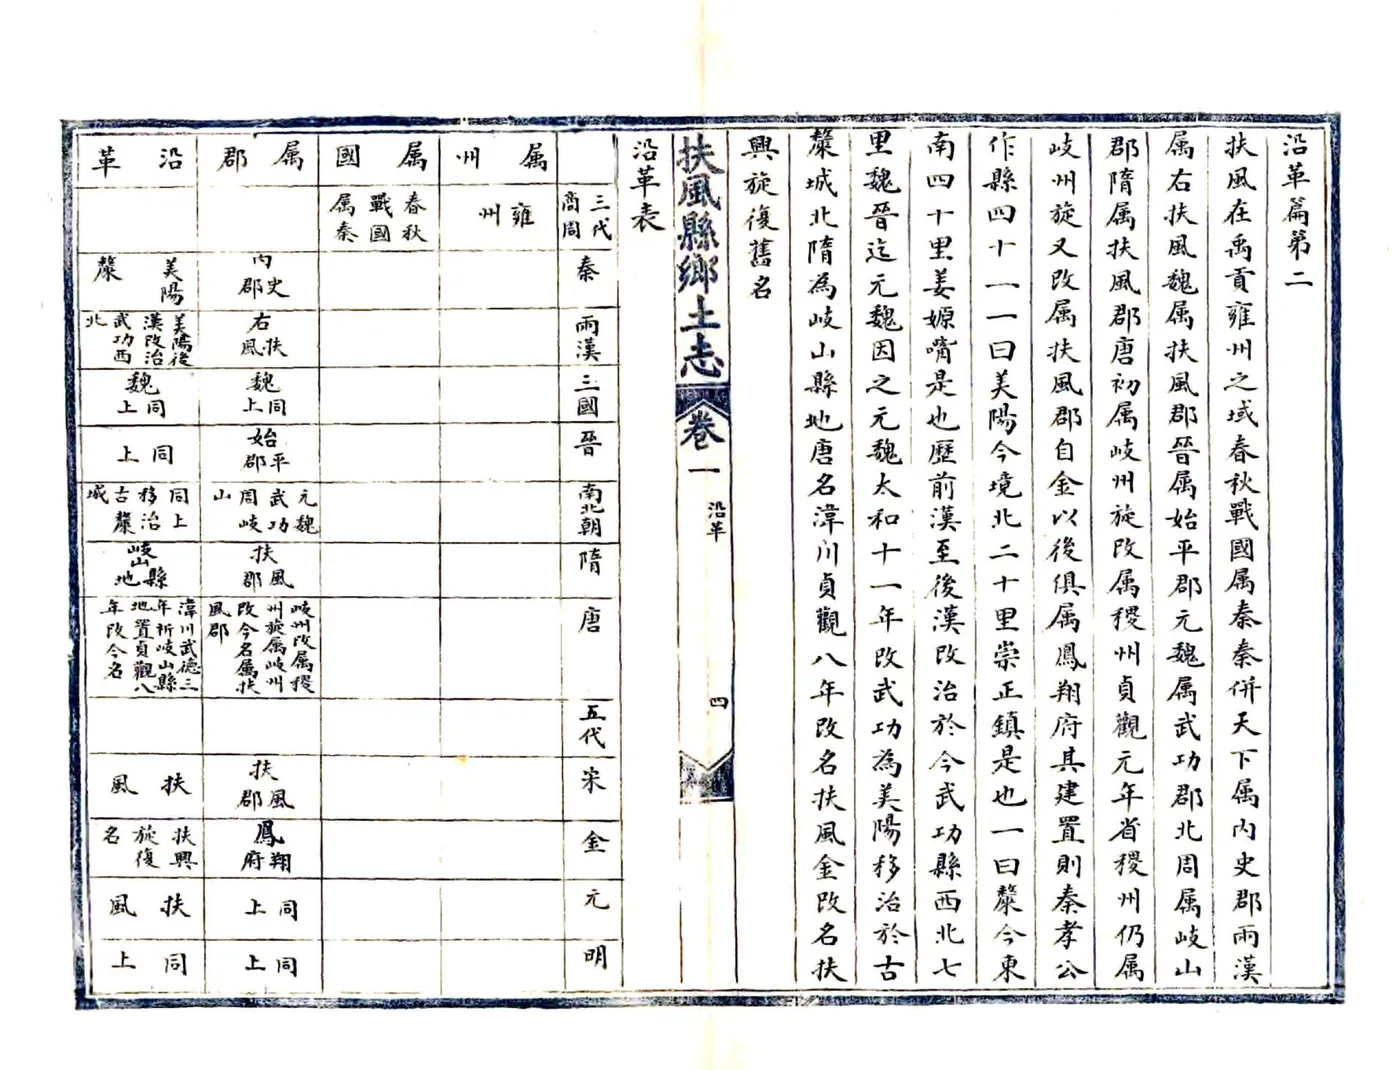 沿革篇第二
扶風在禹貢雍州之域春秋戰國属秦秦併天下属内史郡兩漢
属右扶風魏属扶風郡晉属始平郡元魏属武功郡北周属岐山
郡隋属扶風郡唐初属岐州旋改属稷州貞觀元年省稷州仍属
岐州旋又改属扶風郡自金以後俱属鳳翔府其建置則秦孝公
作縣四十一一曰美陽今境北二十里崇正鎮是也一曰斄今東
南四十里姜嫄嘴是也歷前漢至後漢改治於今武功縣西北七
里魏晉迄元魏因之元魏太和十一年改武功為美陽移治於古
斄城北隋為岐山縣地唐名湋川貞觀八年改名扶風金改名扶
興旋復舊名
扶風縣鄉土志
卷一
沿革
四
沿革表
属州
属國
属郡
沿革
三代
商周
雍州
春秋
戰國
属秦
秦
内史郡
美陽
斄
兩漢
右扶風
美陽後
漢改治
武功西
北
三國
魏同上
魏同上
晉
始平郡
同上
南北朝
元魏
武功
周岐
山
同上
移治
古斄
城
隋
扶風郡
岐山縣地
唐
岐州改属稷
州旋属岐州
改今名属扶
風郡
湋川武德三
年析岐山縣
地置貞觀八
年改今名
五代
宋
扶風郡
扶風
金
鳳翔府
扶興
旋復
名
元
同上
扶風
明
同上
同上